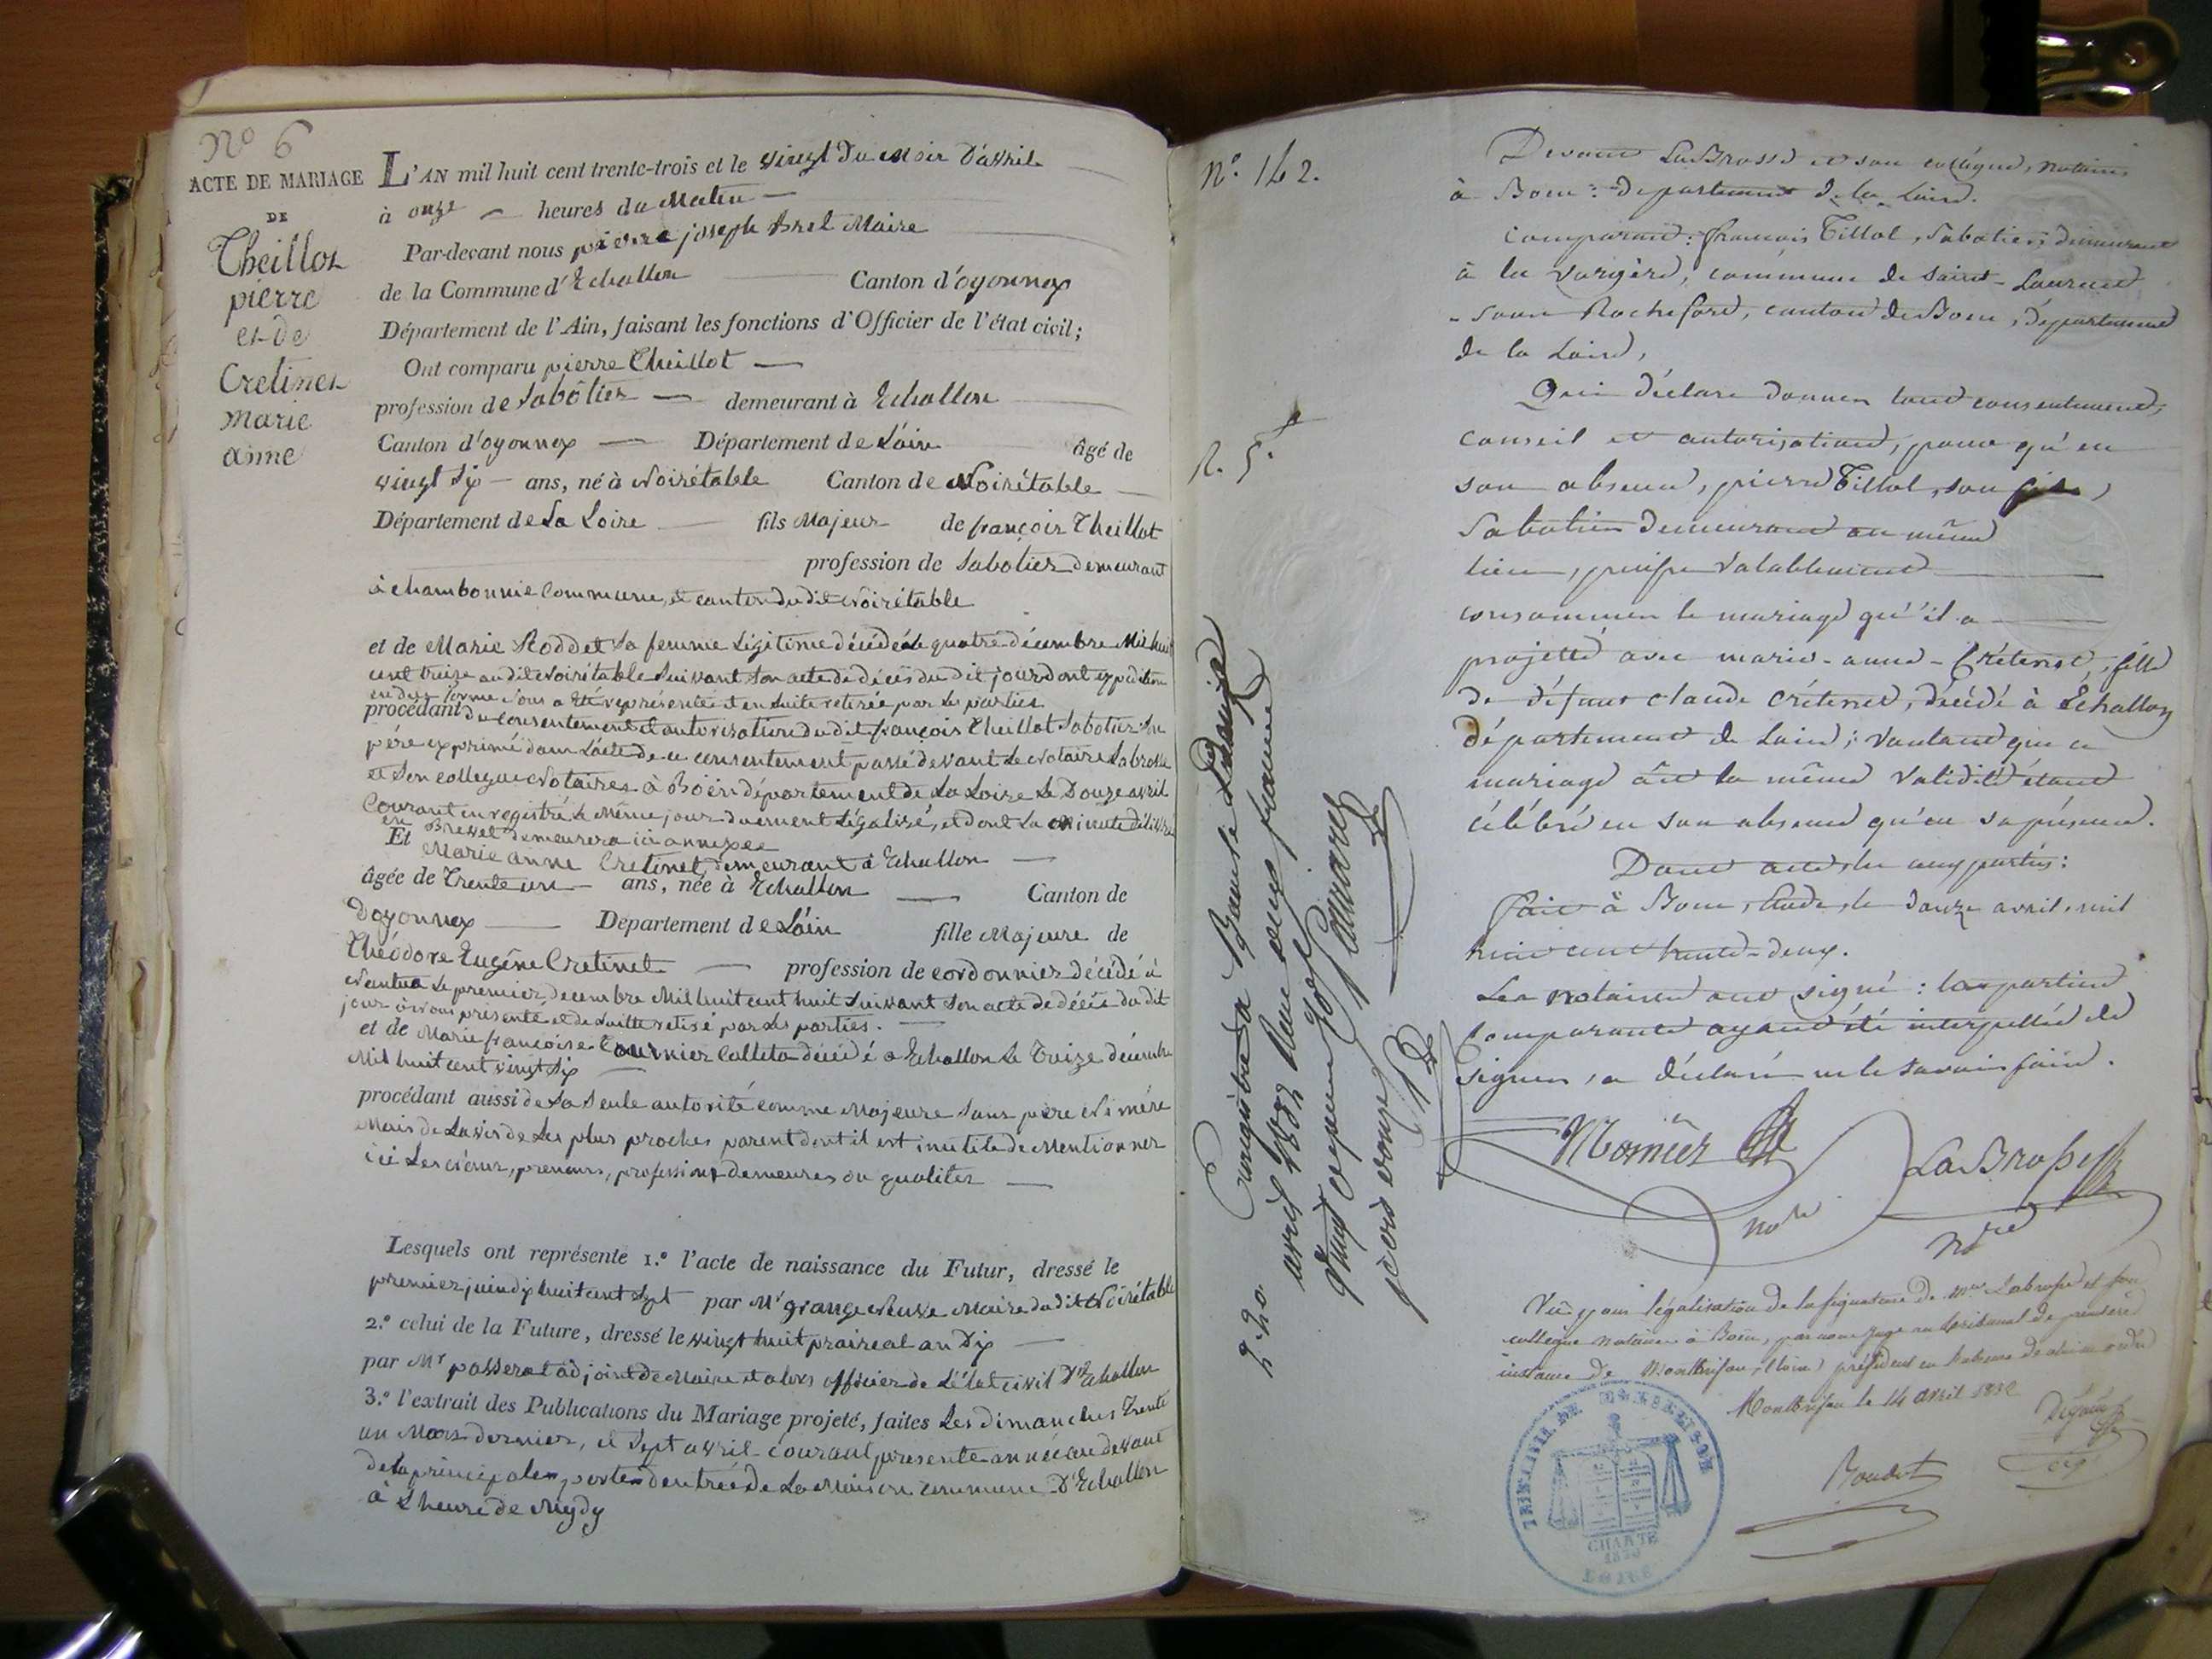 No 6
ACTE DE MARIAGE
DE
Theillot
pierre
et de
Cretinet
marie
anne
L'AN mil huit cent trente-trois et le vingt du mois d'avril
à onze heures du Matin
Par-devant nous pierre joseph Maire
de la Commune d'Echallon Canton d'oyonnax
Département de l'Ain, faisant les fonctions d'Officier de l'état civil;
Ont comparu pierre Theillot
profession de Sabôtier demeurant à Echallon
Canton d'oyonnax Département de L'ain âgé de
vingt six ans, né à Noirétable Canton de Noirétable
Département de La Loire fils Majeur de françois Theillot
profession de Sabotier demeurant
à chambonnie commune, et canton du dit Noirétable
et de Marie Roddet sa femme Légitime décédée le quatre décembre Mil huit
cent treize au dit Noirétable suivant son acte de décès du dit jour dont expédition
en due forme nous a été représentée et ensuite retirée par les parties
procédant du consentement et autorisation du dit françois Theillot Sabotier son
père exprimé dans l'acte de ce consentement passé devant Le Notaire Labrosse
et son collegue Notaires à Boën département de La Loire Le Douze avril
Courant enregistré le Même jour duement Légalisé, et dont La Minute délivrée
en Brevet demeurera ici annexée
Et Marie anne Cretinet demeurant à Echallon
âgée de Trente un ans, née à Echallon Canton de
Doyonnax Département de L'ain fille Majeure de
Théodore Eugène Cretinet profession de cordonnier décédé à
Nantua Le premier decembre Mil huit cent huit suivant son acte de décès du dit
jour à nous présenté et de suitte retiré par les parties.
et de Marie françoise Tournier Calleta décédé a Echallon Le Treize décembre
Mil huit cent vingt six
procédant aussi de sa seule autorité comme Majeure sans père Ni mère
Mais de L'avis de ses plus proches parent dont il est inutile de Mentionner
ici Les noms, prenoms, professions demeures ou qualités
Lesquels ont représente 1.º l'acte de naissance du Futur, dressé le
premier juin dix huit cent sept par Mr grange Neuve Maire du dit Noirétable
2.º celui de la Future, dressé le vingt huit praireal an Dix
par Mr passerat adjoint de Maire et alors officier de L'état civil D'Echallon
3.º l'extrait des Publications du Mariage projeté, faites Les dimanches Trente
un Mars dernier, et Sept avril courant presente année au devant
de la principale porte d'entrée de La Maison commune D'Echallon
à L'heure de Mydy
N.º 142.
R. 5.
Devant LaBrosse et son collègue, notaires
à Boen: departement de la Loire.
Comparait: françois Tillot, Sabotier, demeurant
à la vorgère, commune de Saint-Laurent
-sous Rochefort, canton de Boen, département
de la Loire,
Qui déclare donner tout consentement,
conseil et autorisation, pour qu'en
son absence, pierre Tillot, son fils,
Sabotier demeurant au même
lieu, puisse valablement
consommer le mariage qu'il a
projetté avec marie-anne-Crétenet, fille
de défunt claude crétenet, décédé à Echallon
département de Lain; voulant que ce
mariage ait la même validité étant
célébré en son absence qu'en sa présence.
Dont acte lu aux parties:
fait à Boen, étude, le douze avril, mil
huit cent trente-deux.
Les notaires ont signé: la partie
comparante ayant été interpellée de
signer, a déclaré ne le savoir faire.
Monier LaBrosse
nore nore
Vu pour légalisation de la signature de Me Labrosse et son
collègue notaires à Boën, par nous juge au tribunal de première
instance de Montbrison, (Loire) président en
Montbrison le 14 avril 1832
Boudot
TRIBUNAL DE MONTBRISON
CHARTE
1830
LOIRE
2.20
Enregistré à Boen le Douze
avril 1832 Reçu deux francs
vingt centimes